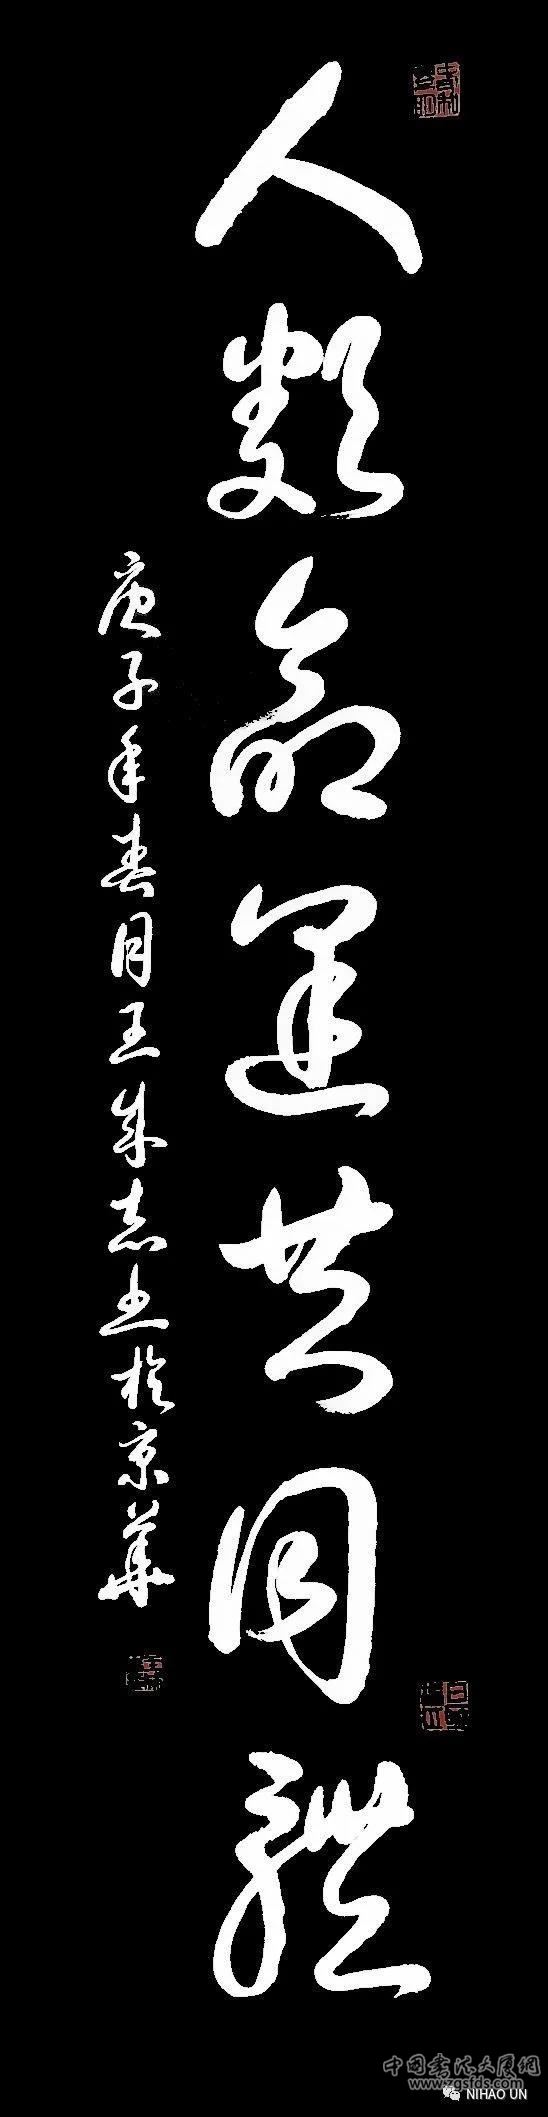 人類命運共同體
庚子年春月王成志书於京華
中国书法大展網
www.zgsfds.com
NIHAO UN